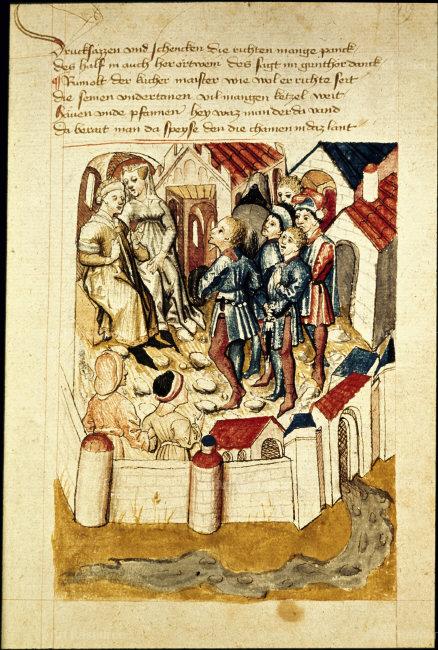 Drucksäzzen vnd schencken die richten mange panck
des half in auch her ortwein des sagt im gunther danck
Rumolt der kücher maister wie wol er richte seit
die seinen vndertanen vil mangen ketzel weit
Häuen vnde pfannen / hey waz man der da vand
da berait man da speyse den die chamen in daz lant